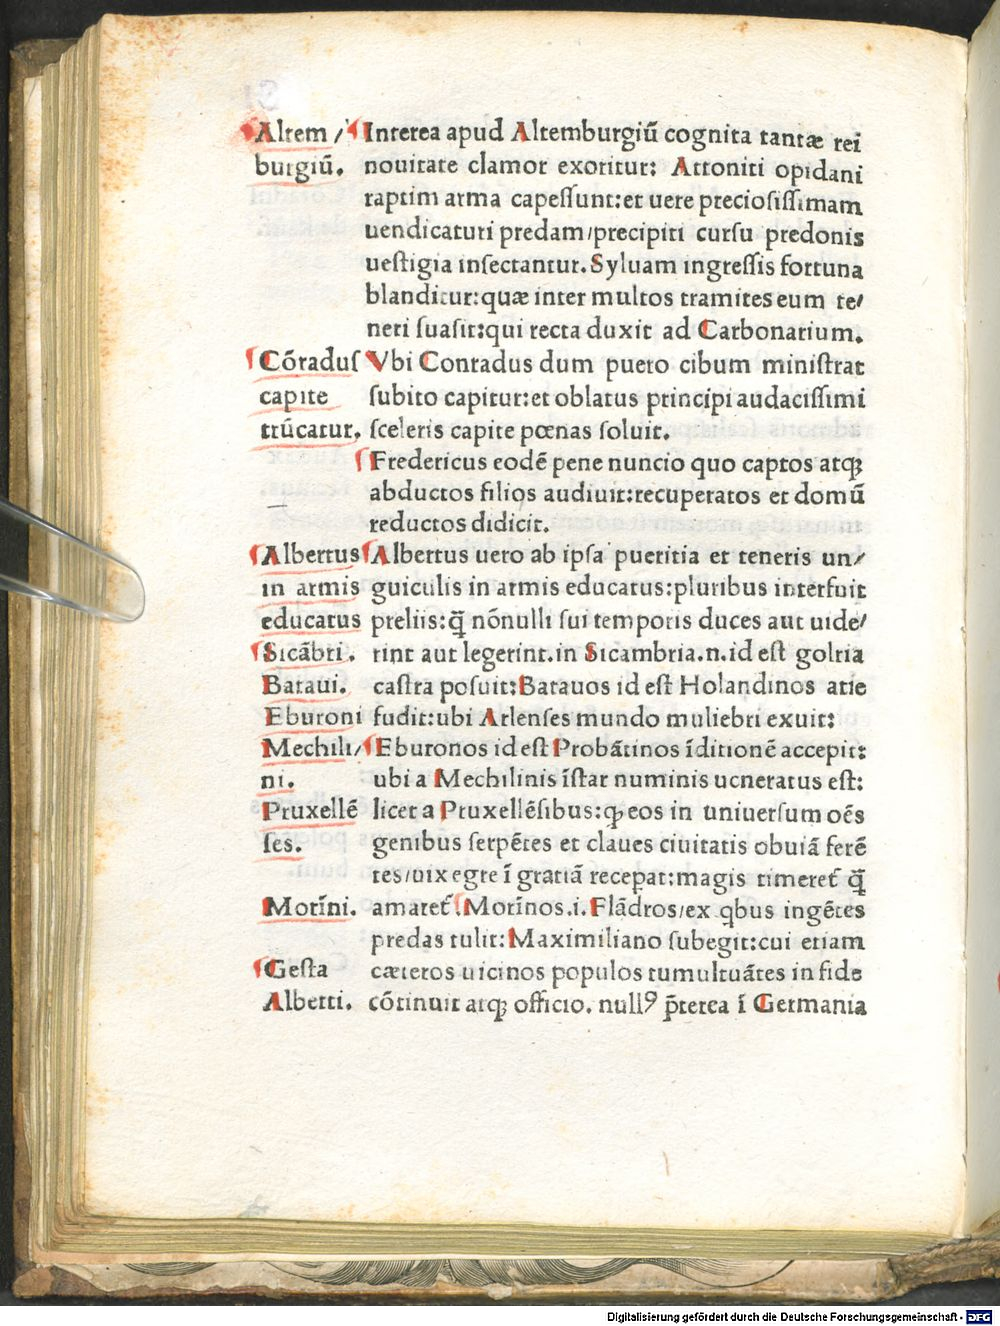 Altem/
burgiū.
Interea apud Altemburgiū cognita tantæ rei
nouitate clamor exoritur: Attoniti opidani
raptim arma capeſſunt:et uere precioſiſſimam
uendicaturi predam/precipiti curſu predonis
ueſtigia inſectantur. Syluam ingreſſis fortuna
blanditur:quæ inter multos tramites eum te/
neri ſuaſit:qui recta duxit ad Carbonarium.
Cōraduſ
capite
trūcatur.
Vbi Conradus dum puero cibum miniſtrat
ſubito capitur:et oblatus principi audaciſſimi
ſceleris capite pœnas ſoluit.
Fredericus eodē pene nuncio quo captos atqꝫ
abductos filios audiuit:recuperatos et domū
reductos didicit.
Albertus
in armis
educatus
Albertus uero ab ipſa pueritia et teneris un/
guiculis in armis educatus:pluribus interfuit
preliis:q̄ nōnulli ſui temporis duces aut uide/
Sicābri.
Bataui.
Eburoni
rint aut legerint.in Sicambria.n.id eſt goltria
caſtra poſuit:Batauos id eſt Holandinos atie
fudit:ubi Arlenſes mundo muliebri exuit:
Mechili/
ni.
Pruxellē
ſes.
Eburonos id eſt Probātinos īditionē accepit:
ubi a Mechilinis īſtar numinis ueneratus eſt:
licet a Pruxellēſibus:qꝫ eos in uniuerſum oēs
genibus ſerpētes et claues ciuitatis obuiā ferē
tes/uix egre ī gratiā recepat:magis timeret᷑ q̄
Morīni.
amaret᷑. Morīnos.i.Flādros/ex qbus ingētes
predas tulit:Maximiliano ſubegit:cui etiam
Geſta
Alberti.
cæteros uicinos populos tumultuātes in fide
cōtinuit atqꝫ officio. nullꝰ p̄terea ī Germania
Digitalisierung gefördert durch die Deutsche Forschungsgemeinschaft - DFG